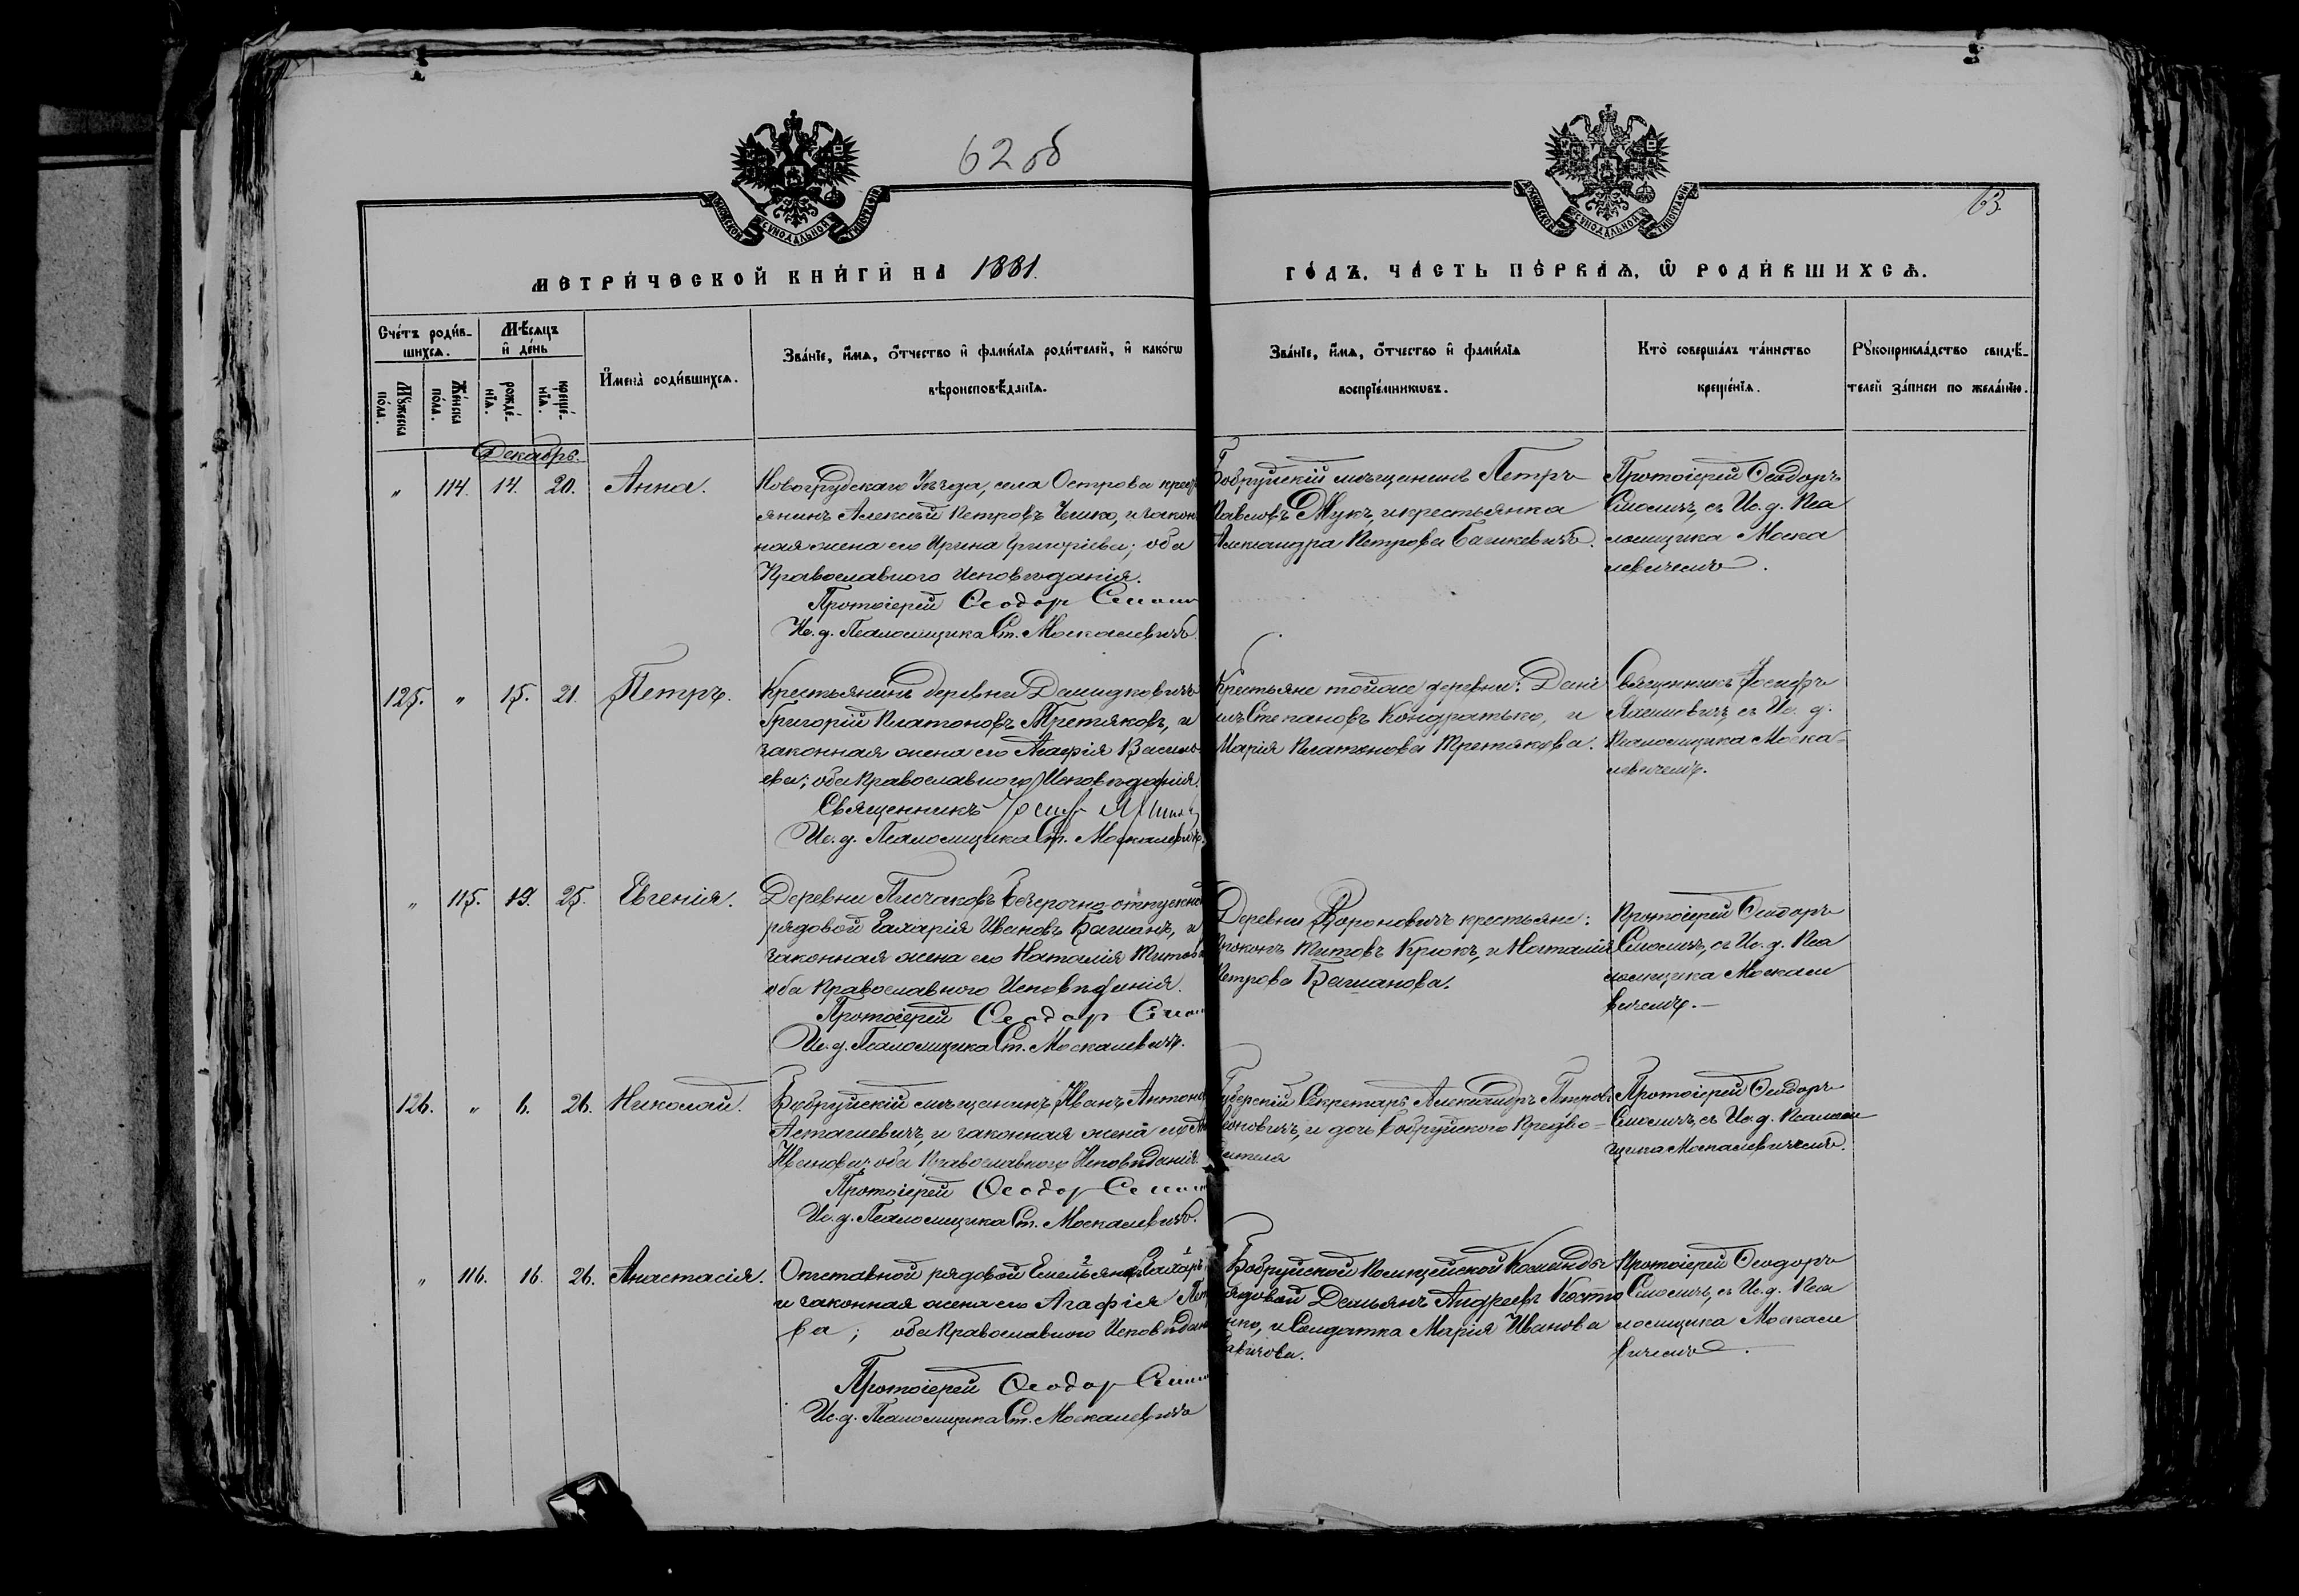 62 об
63.
МЕТРИ́ЧЕСКОЙ КНИ́ГИ НА 1881.
ГО́ДЪ. ЧА́СТЬ ПЕ́РВАѦ, Ѡ РОДИ́ВШИХСѦ.
Сче́тъ роди́в-
шихсѧ.
Мꙋжеска по́ла.
Же́нска по́ла.
Мѣ́сѧцъ и де́нь
рожде́-нїѧ.
креще́-нїѧ.
И҆мена̀ роди́вшихсѧ.
Зва́нїе, и҆́мѧ, о҆́тчество и҆ фами́лїѧ роди́телей, и҆ како́гѡ
вѣроисповѣ́данїѧ.
Зва́нїе, и҆́мѧ, о҆́тчество и҆ фами́лїѧ
воспрїе́мникѡвъ.
Кто̀ соверша́лъ та́инство
креще́нїѧ.
Рꙋкоприкла́дство свидѣ́-
телей за́писи по жела́нїю.
Декабрь.
" 114. 14. 20. Анна.
Новогрудскаго Уѣзда, села Острова крест
янинъ Алексѣй Петровъ Чешко, и закон
ная жена его Ирина Григоріева; оба
Православнаго Исповѣданія.
Протоіерей Ѳеодор
Ис. д. Псаломщика Ст. Москалевичъ.
Бобруйскій мѣщанинъ Петръ
Павловъ Жукъ, и крестьянка
Александра Петрова Башкевичъ.
Протоіерей Ѳеодоръ
Смоличъ, съ Ис. д. Пса
ломщика Моска
левичемъ.
125. " 15. 21. Петръ.
Крестьянинъ деревни Демидковичъ
Григорій Платоновъ Третяковъ, и
законная жена его Агафія Василь-
ева; оба Православнаго Исповѣданія.
Священникъ Іосиф
Ис. д. Псаломщика Ст. Москалевичъ.
Крестьяне тойже деревни: Дані
илъ Степановъ Кондратько, и
Марія Платонова Третякова.
Священникъ Іосифъ
съ Ис. д.
Псаломщика Моска-
левичемъ.
" 115. 19. 25. Евгенія.
Деревни безсрочно-отпускной
рядовой Захарія Ивановъ Башанъ, и
законная жена его Наталія Титова
оба Православнаго Исповѣданія.
Протоіерей Ѳеодор
Ис. д. Псаломщика Ст. Москалевичъ.
Деревни крестьяне:
Прокопъ Титовъ Крюкъ, и Наталія
Петрова Башанова.
Протоіерей Ѳеодоръ
Смоличъ, съ Ис. д. Пса
ломщика Москале
вичемъ.
126. " 6. 26. Николай.
Бобруйскій мѣщанинъ Иванъ Антоновъ
Асташевичъ, и законная жена его
Иванова; оба Православнаго Исповѣданія.
Протоіерей Ѳеодор
Ис. д. Псаломщика Ст. Москалевичъ.
Губерскій Секретарь Александръ Петровъ
и дочь Бобруйского Предво-
дителя
Протоіерей Ѳеодоръ
Смоличъ, съ Ис. д. Псалом
щика Москалевичемъ.
" 116. 16. 26. Анастасія.
Отставной рядовой Емельянъ Захаръ
и законная жена его Агафія Петро
ва; оба Православнаго Исповѣдан
Протоіерей Ѳеодор
Ис. д. Псаломщика Ст. Москалевичъ
Бобруйской Полицейской Команды
рядовой Демьянъ Андреевъ Косто
нко, и Солдатка Марія Иванова
Савичова.
Протоіерей Ѳеодоръ
Смоличъ, съ Ис. д. Пса
ломщика Москале
вичемъ.